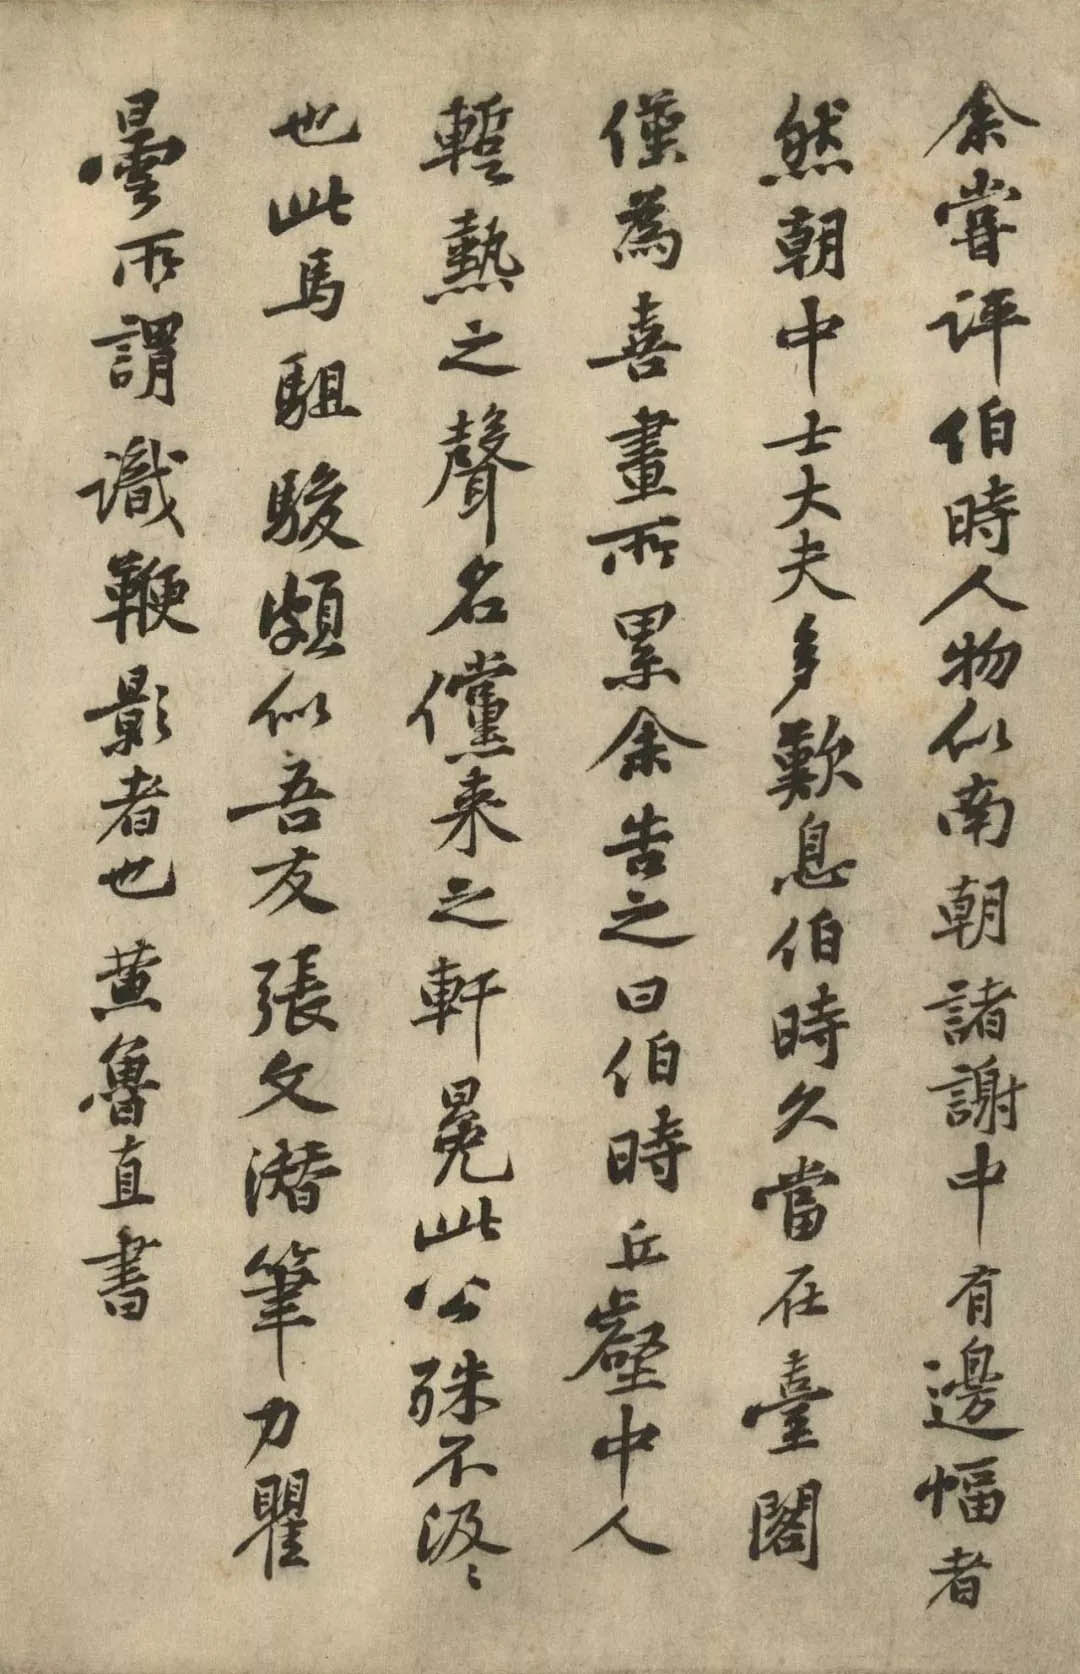 余嘗評伯時人物似南朝諸謝中有邊幅者
然朝中士大夫多歎息伯時久當在臺閣
僅為喜畫所累余告之曰伯時丘壑中人
蹔熱之聲名儻来之軒冕此公殊不汲汲
也此馬駔駿頗似吾友張文潛筆力瞿
曇所謂識鞭影者也黃魯直書